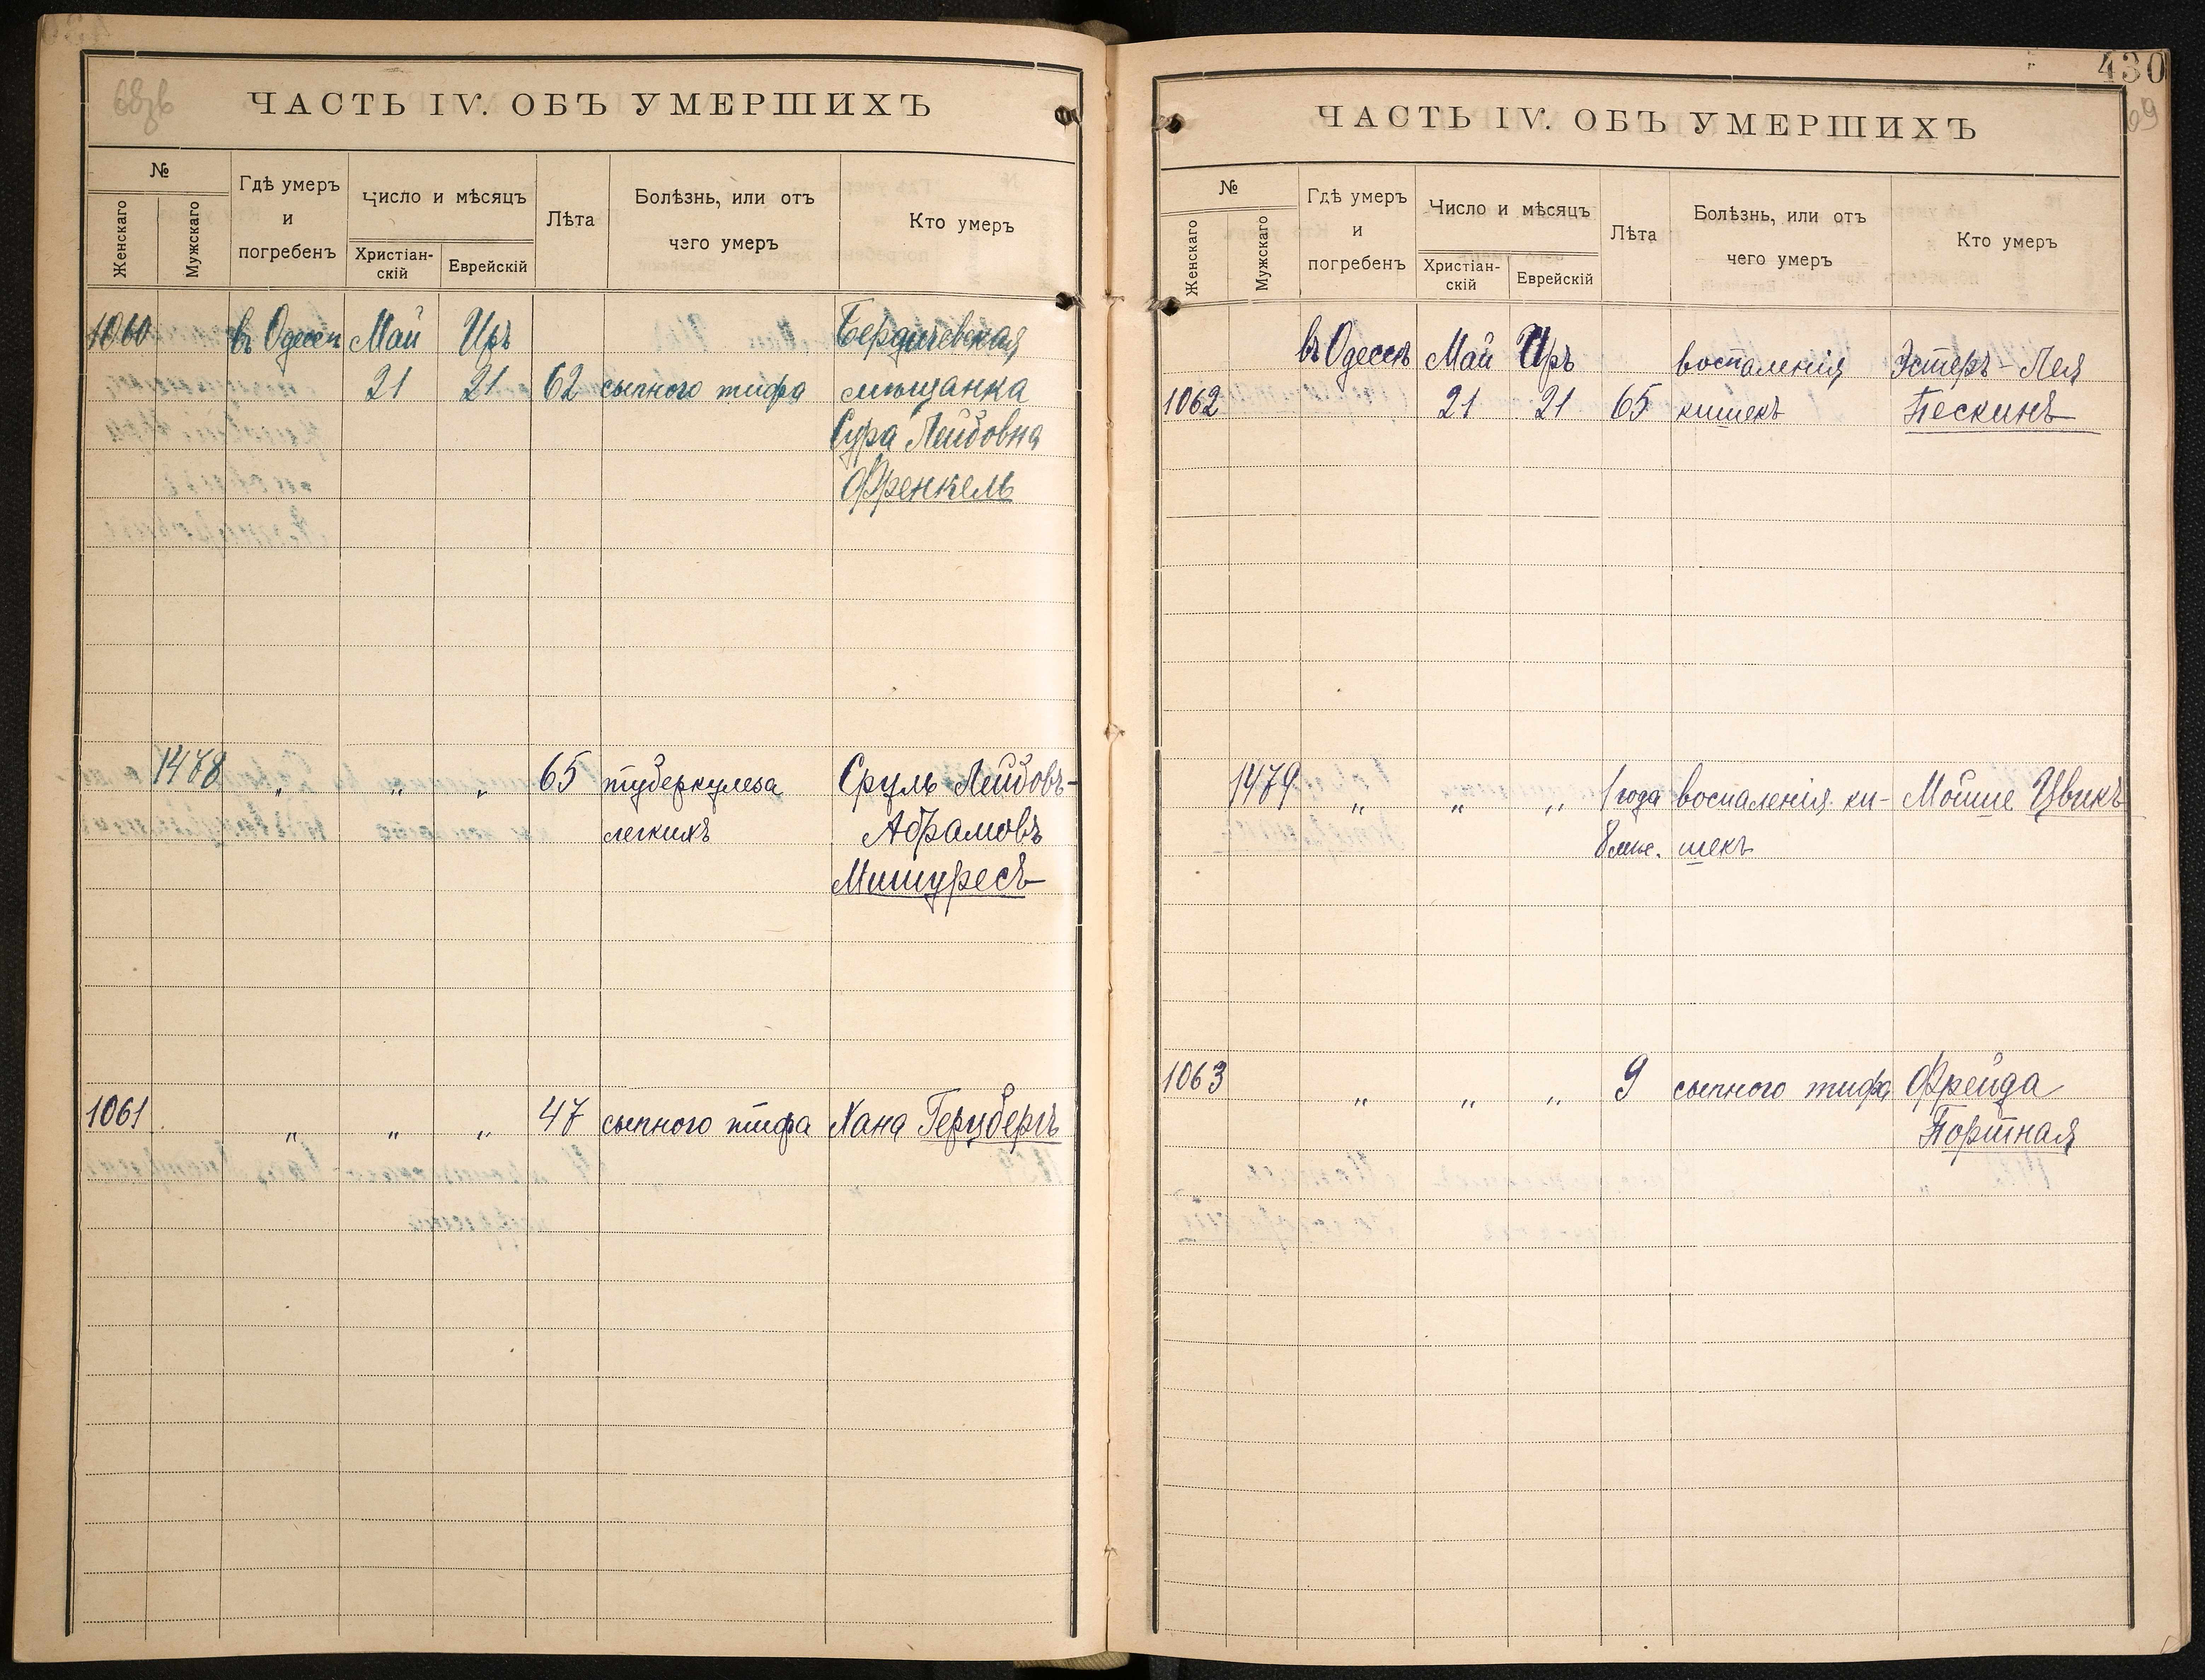 ЧАСТЬ IV. ОБЪ УМЕРШИХЪ
№
Женскаго
Мужскаго
Гдѣ умеръ
и
погребенъ
Число и мѣсяцъ
Христіан-
скій
Еврейскій
Лѣта
Болѣзнь, или отъ
чего умеръ
Кто умеръ
1060 въ Одессѣ Май Иръ Бердичевская
21 21 62 сыпного тифа мѣщанка
Сура Лейбовна
Френкель
1478 „ „ „ 65 туберкулеза Сруль Лейбовъ-
легкихъ Абрамовъ
Мишуресъ
1061 „ „ „ 47 сыпного тифа Хана Герцбергъ
430
69
ЧАСТЬ IV. ОБЪ УМЕРШИХЪ
№
Женскаго
Мужскаго
Гдѣ умеръ
и
погребенъ
Число и мѣсяцъ
Христіан-
скій
Еврейскій
Лѣта
Болѣзнь, или отъ
чего умеръ
Кто умеръ
въ Одессѣ Май Иръ воспаленія Эстеръ-Лея
1062 21 21 65 кишекъ Пескинъ
1479 „ „ „ 1 года воспаленія ки- Мойше Цвикъ
8 мѣс. шекъ
1063 „ „ „ 9 сыпного тифа Фрейда
Портная